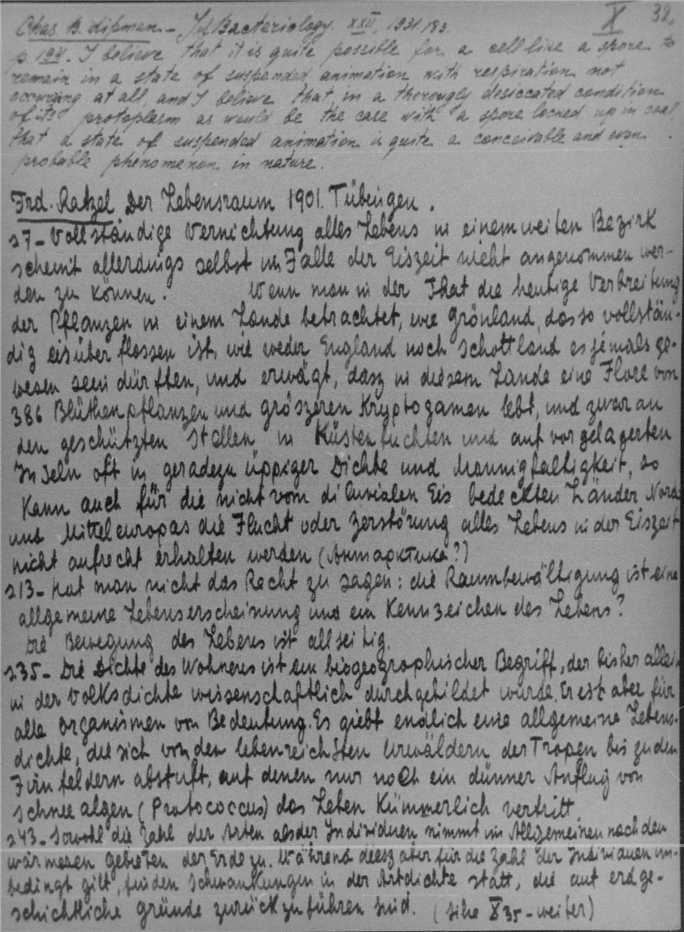 X 32.
Chas. B. Lipman. – J. of Bacteriology. XXII, 1931, 183.
p. 194. I believe that it is quite possible for a cell like a spore to
remain in a state of suspended animation with respiration not
occurring at all, and I believe that in a thoroughly desiccated condition
of its protoplasm as would be the case with a spore locked up in coal,
that a state of suspended animation is quite a conceivable and even
probable phenomenon in nature.
Frd. Ratzel Der Lebensraum 1901. Tübingen.
s7 – Vollständige Vernichtung alles Lebens in einem weiten Bezirk
scheint allerdings selbst im Falle der Eiszeit nicht angenommen wer-
den zu können. Wenn man in der That die heutige Verbreitung
der Pflanzen in einem Lande betrachtet, wie Grönland, das so vollstän-
dig eisüberflossen ist, wie weder England noch Schottland es jemals ge-
wesen sein dürften, und erwägt, dasz in diesem Lande eine Flore von
386 Blüthenpflanzen und gröszeren Kryptogamen lebt, und zwar an
den geschützten Stellen in Küstenbuchten und auf vorgelagerten
Inseln oft in geradezu üppiger Dichte und Mannigfaltigkeit, so
kann auch für die nicht vom diluvialen Eis bedeckten Länder Nord
und Mitteleuropas die Flucht oder Zerstörung alles Lebens in der Eiszeit
nicht aufrecht erhalten werden (Антарктика?)
s13 – Hat man nicht das Recht zu sagen: die Raumbewältigung ist eine
allgemeine Lebenserscheinung und ein Kennzeichen des Lebens?
Die Bewegung des Lebens ist allseitig.
s35 – Die Dichte des Wohnens ist ein biogeographischer Begriff, der bisher allein
in der Volksdichte wissenschaftlich durchgebildet wurde. Er ist aber für
alle Organismen von Bedeutung. Es giebt endlich eine allgemeine Lebens-
dichte, die sich von den lebenreichsten Urwäldern der Tropen bis zu den
Firnfeldern abstuft, auf denen nur noch ein dünner Anflug von
Schneealgen (Protococcus) das Leben kümmerlich vertritt.
s43 – Sowohl die Zahl der Arten als der Individuen nimmt im Allgemeinen nach den
wärmeren Gebieten der Erde zu. Während dies aber für die Zahl der Individuen un-
bedingt gilt, finden Schwankungen in der Artdichte statt, die auf erdge-
schichtliche Gründe zurückzuführen sind. (sihe X 35 – weiter)